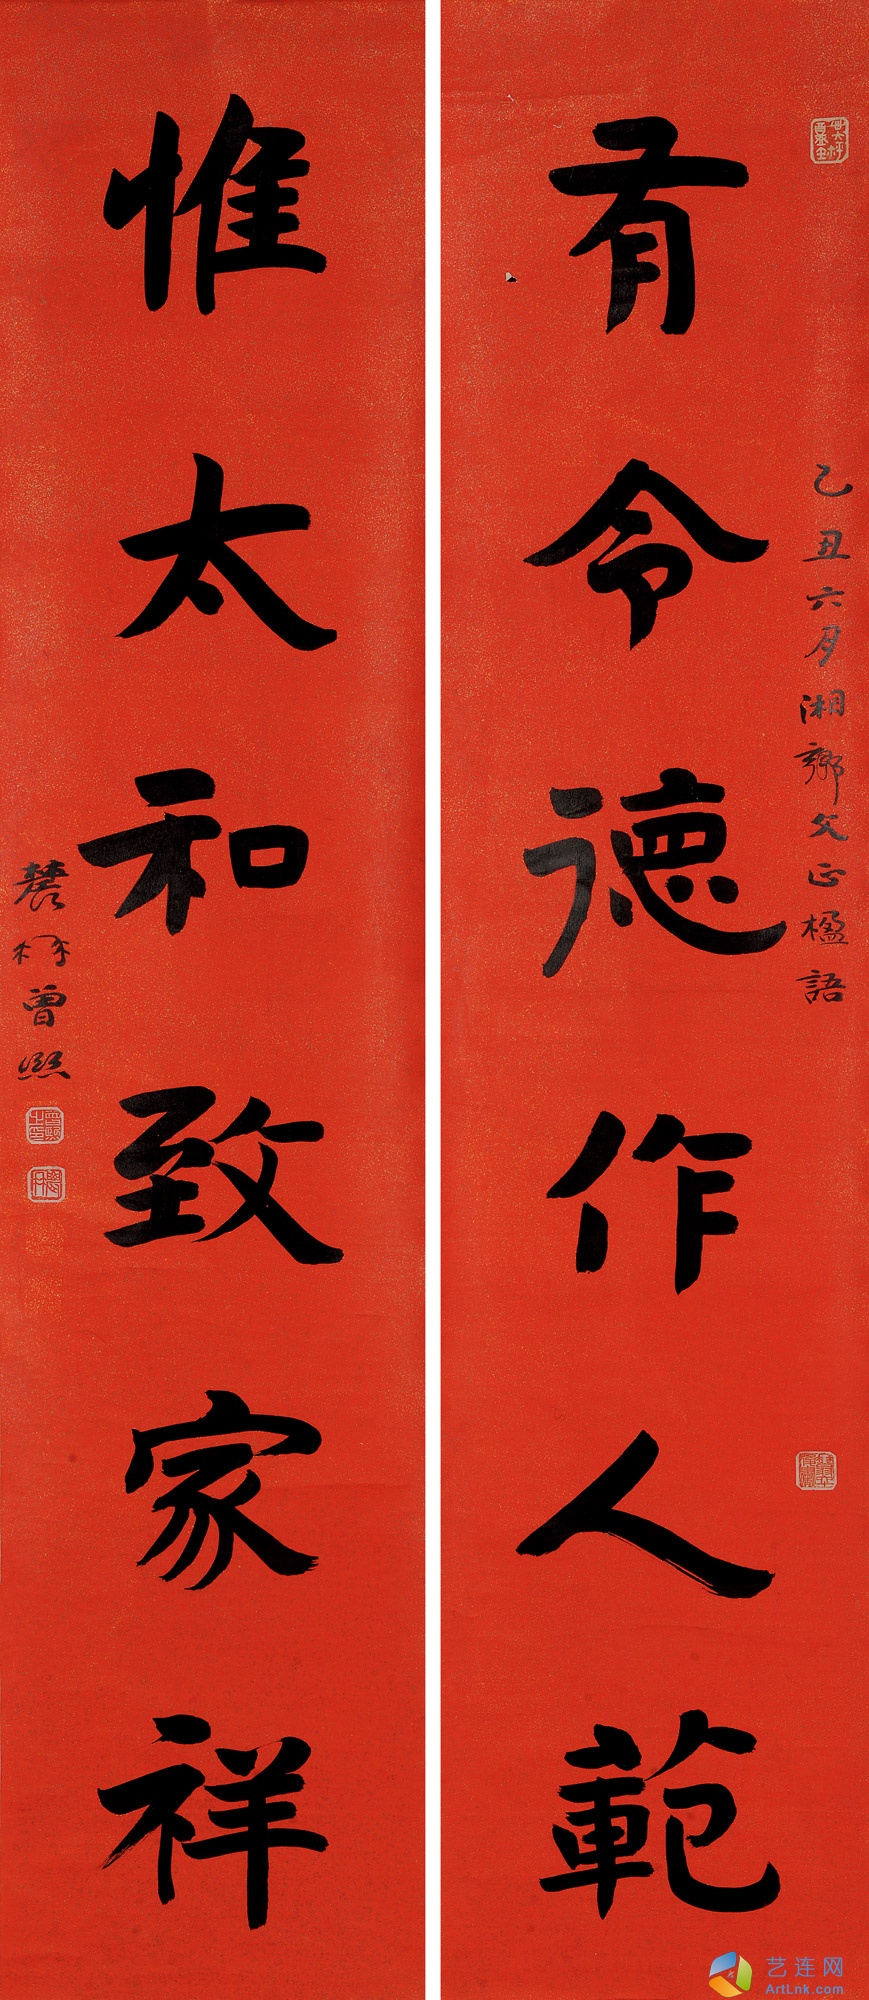 有令德作人範
乙丑六月湘鄉父正楹語
惟太和致家祥
農髯曾熙
艺连网
ArtLnk.com